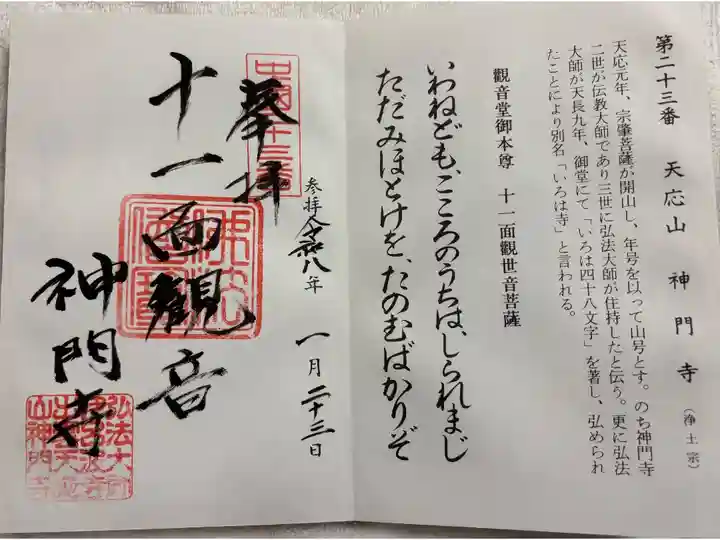 第二十三番　天応山　神門寺（浄土宗）
天応元年、宗肇菩薩が開山し、年号を以って山号とす。のち神門寺
二世が伝教大師であり三世に弘法大師が住持したと伝う。更に弘法
大師が天長九年、御堂にて「いろは四十八文字」を著し、弘められ
たことにより別名「いろは寺」と言われる。
觀音堂御本尊　十一面觀世音菩薩
いわねども、こころのうちは、しられまじ
ただみほとけを、たのむばかりぞ
参拝令和八年　一月二十三日
中國二十三番
奉拝
十一面觀音
神門寺
弘法大師
出雲天応
山神門寺